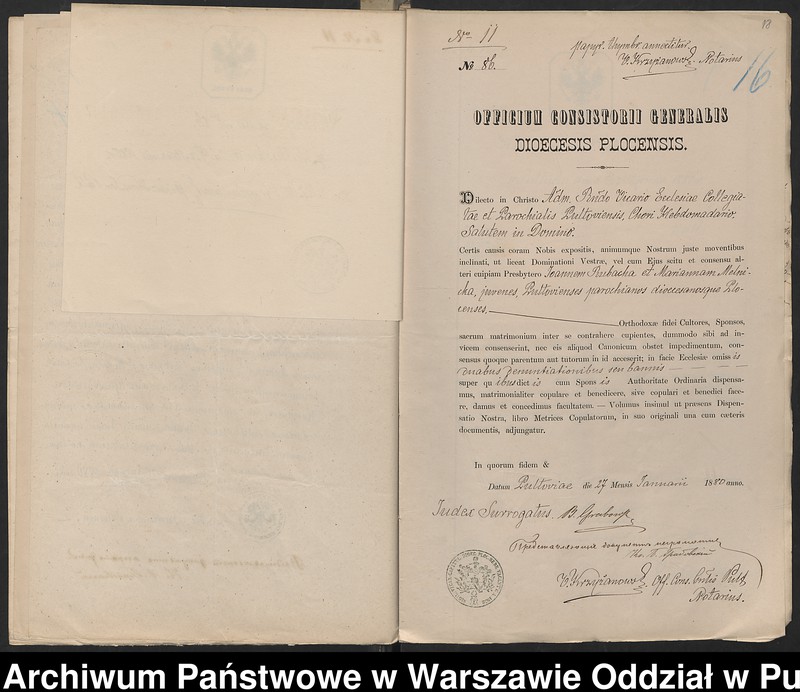 No 11
12
papyr. 
V. Krzyżanowski Notarius
№ 86.
16
OFFICIUM CONSISTORII GENERALIS
DIOECESIS PLOCENSIS.
Dilecto in Christo Adm. Rndo Vicario Ecclesiae Collegia-
tae et Parochialis Pultoviensis, Chori Hebdomadario.
Salutem in Domino.
Certis causis coram Nobis expositis, animumque Nostrum juste moventibus
inclinati, ut liceat Dominationi Vestræ, vel cum Ejus scitu et consensu al-
teri cuipiam Presbytero Joannem Rubacha et Mariannam Melni-
cka, juvenes, Pultovienses parochianos dioecesanosque Plo-
censes.
Orthodoxæ fidei Cultores, Sponsos,
sacrum matrimonium inter se contrahere cupientes, dummodo sibi ad in-
vicem consenserint, nec eis aliquod Canonicum obstet impedimentum, con-
sensus quoque parentum aut tutorum in id accesserit; in facie Ecclesiæ omiss is
duabus denuntiationibus seu bannis
super qu ibus dict is cum Spons is Authoritate Ordinaria dispensa-
mus, matrimonialiter copulare et benedicere, sive copulari et benedici face-
re, damus et concedimus facultatem. — Volumus insimul ut præsens Dispen-
satio Nostra, libro Metrices Copulatorum, in suo originali una cum cæteris
documentis, adjungatur.
In quorum fidem &
Datum Pultoviae die 27 Mensis Januarii 1880 anno.
Judex Surrogatus. B. Grabowsk
V. Krzyżanowski Off. Cons. Gnlis Pult.
Notarius.
Archiwum Państwowe w Warszawie Oddział w Pu